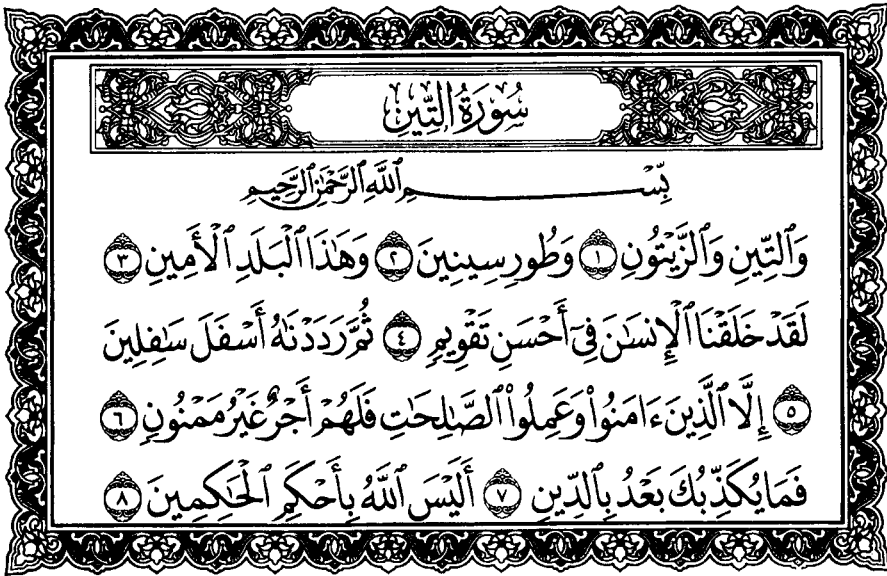 سُورَةُ التِّينِ
بِسْمِ ٱللَّهِ ٱلرَّحْمَٰنِ ٱلرَّحِيمِ
وَٱلتِّينِ وَٱلزَّيْتُونِ ١ وَطُورِ سِينِينَ ٢ وَهَٰذَا ٱلْبَلَدِ ٱلْأَمِينِ ٣
لَقَدْ خَلَقْنَا ٱلْإِنسَٰنَ فِىٓ أَحْسَنِ تَقْوِيمٍ ٤ ثُمَّ رَدَدْنَٰهُ أَسْفَلَ سَٰفِلِينَ
٥ إِلَّا ٱلَّذِينَ ءَامَنُوا۟ وَعَمِلُوا۟ ٱلصَّٰلِحَٰتِ فَلَهُمْ أَجْرٌ غَيْرُ مَمْنُونٍ ٦
فَمَا يُكَذِّبُكَ بَعْدُ بِٱلدِّينِ ٧ أَلَيْسَ ٱللَّهُ بِأَحْكَمِ ٱلْحَٰكِمِينَ ٨